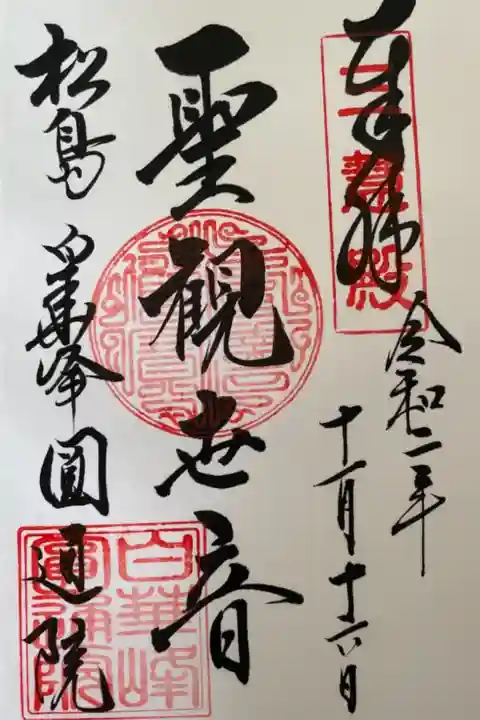 奉拝
三慧殿
令和二年
十一月十六日
聖観世音
松島 白華峰 圓通院
白華峰
圓通院